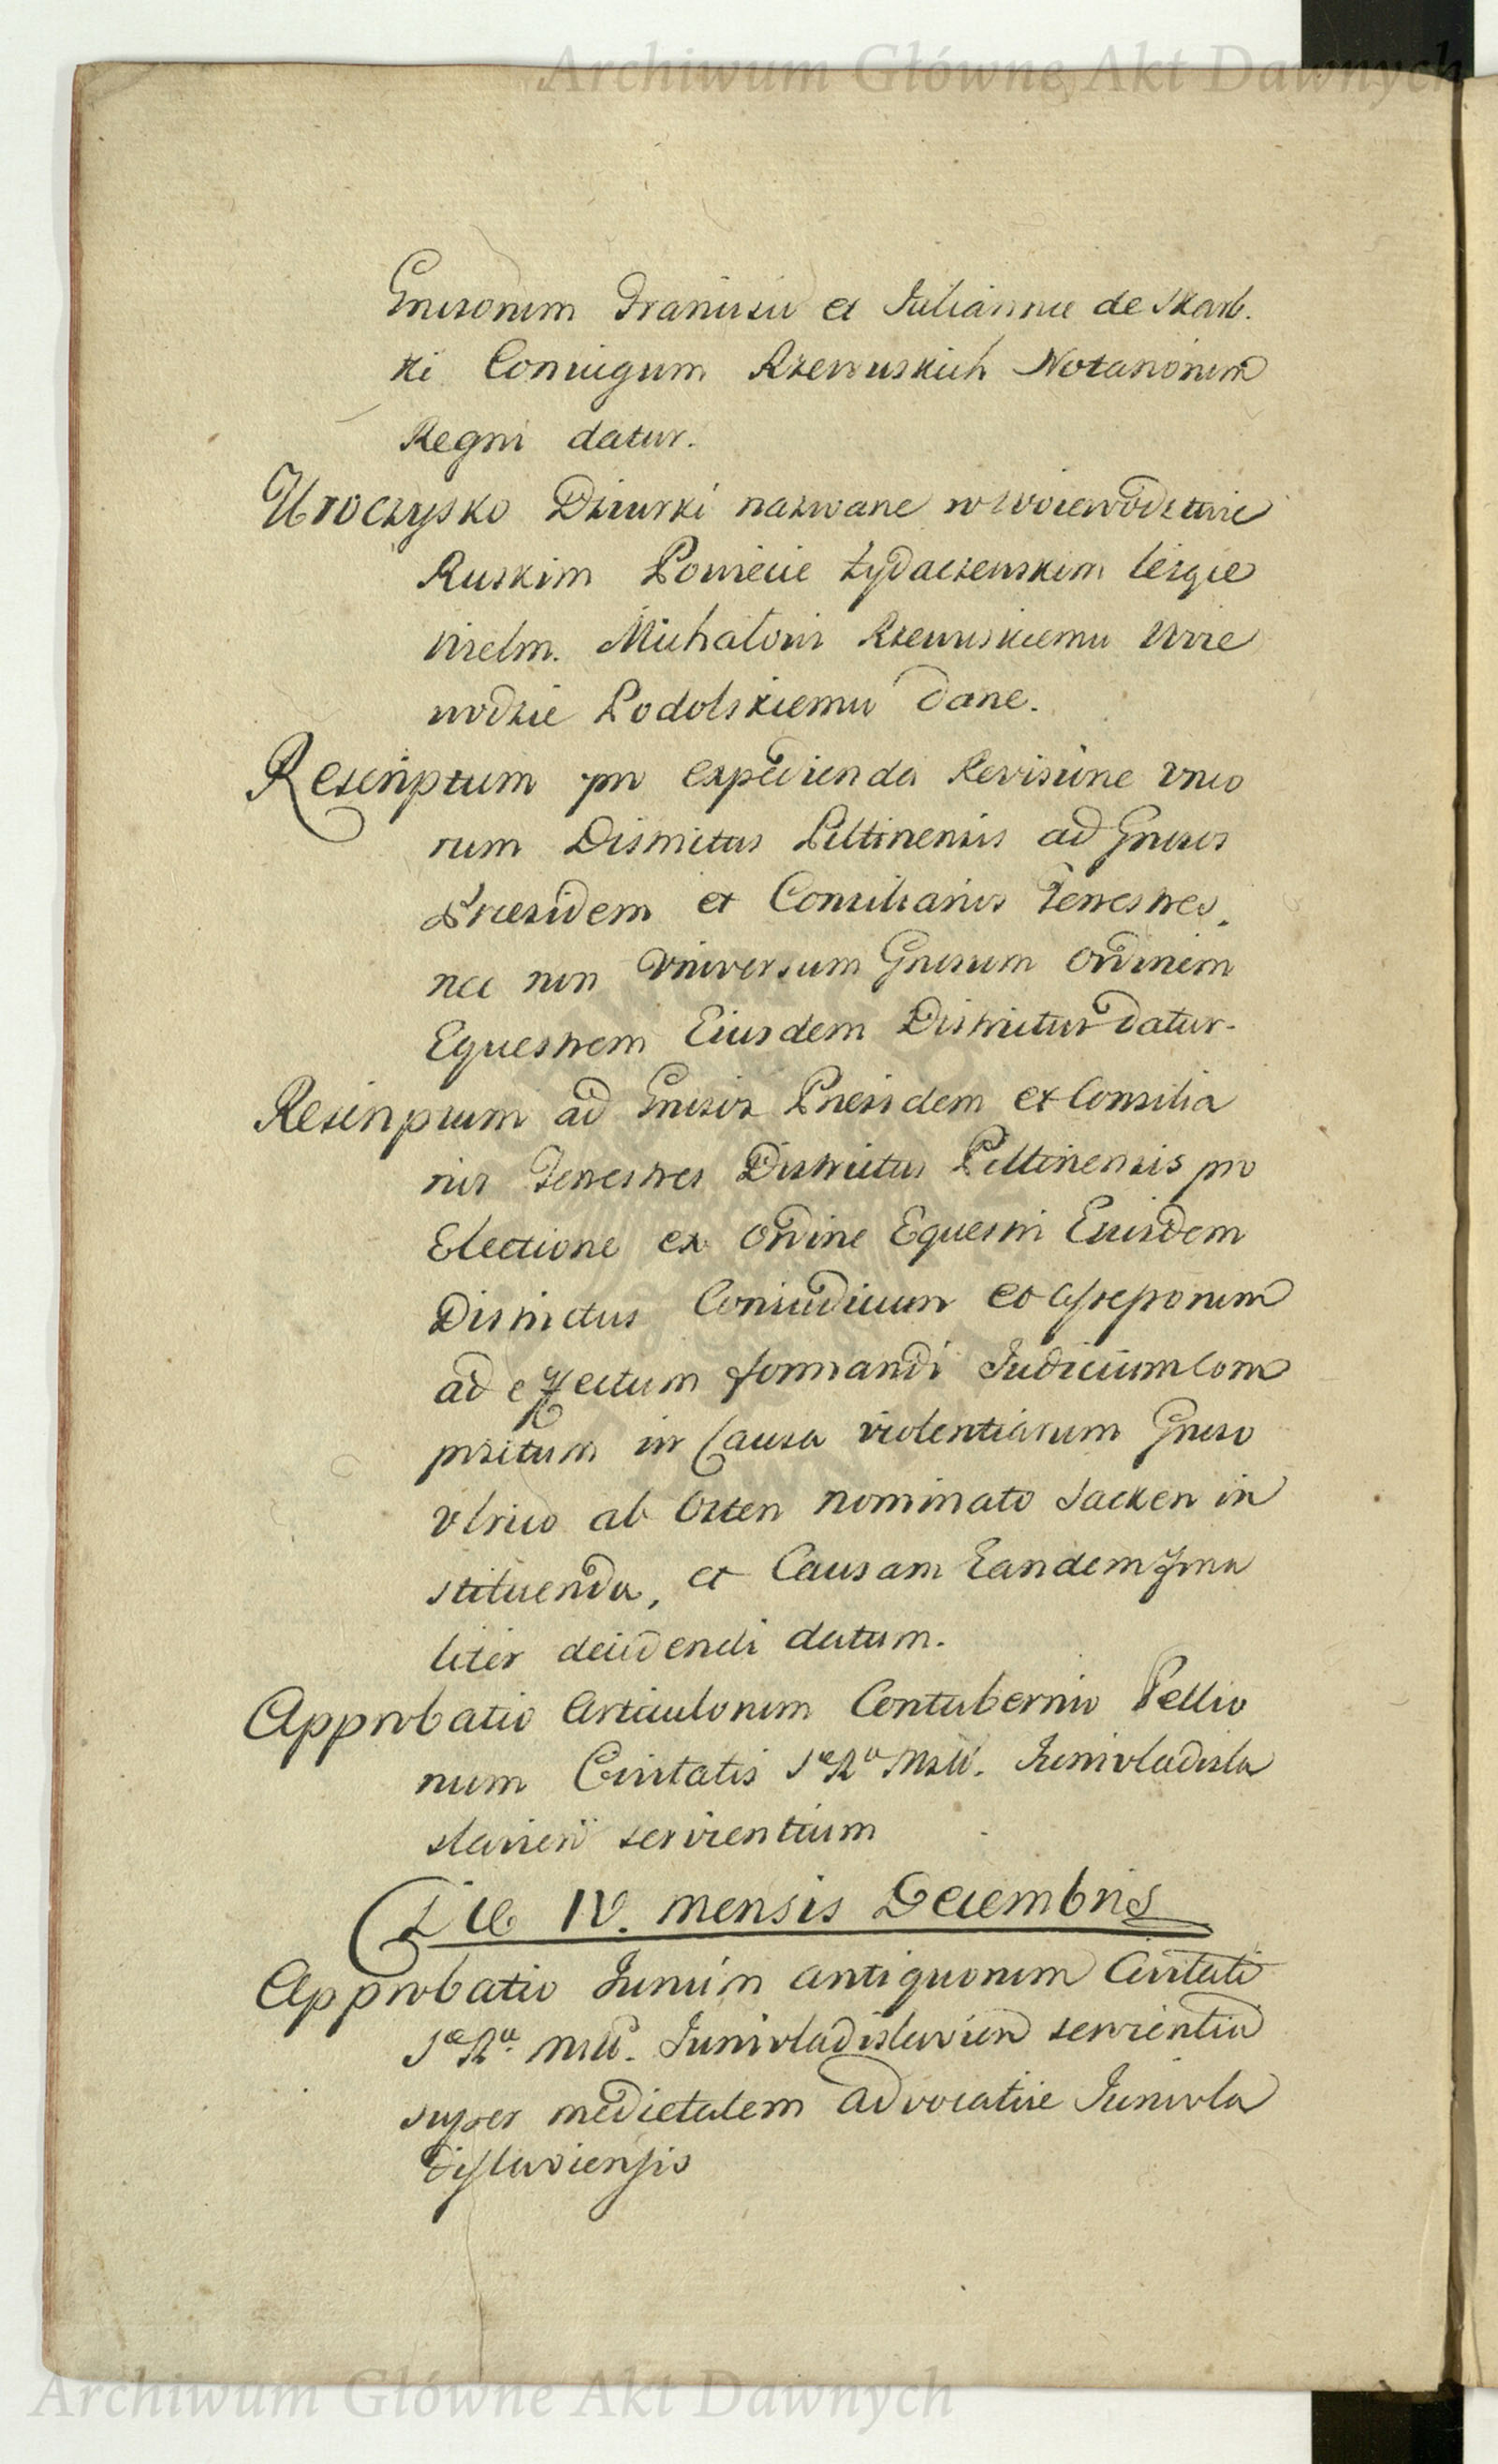 Archiwum Główne Akt Dawnych
Gnerorum Francisci et Juliannæ de Skarb.
ki Coniugum Rzewuskich Notariorum
Regni datur.
Uroczysko Dziurki nazwane w Woiewodztwie
Ruskim Powiecie Żydaczewskim leżące
Wielm. Michałowi Rzewuskiemu Woie
wodzie Podolskiemu dane.
Rescriptum pro expedienda Revisione Unco
rum Districtus Piltinensis ad Gneros
Præsidem et Consiliarios Terrestres,
nec non Universum Gnerum Ordinem
Equestrem Eiusdem Districtus datur.
Rescriptum ad Gneros Præsidem et Consilia
rios Terrestres Districtus Piltinensis pro
Electione ex Ordine Equestri Eiusdem
Districtus Coniudicum et Assessorum
ad effectum formandi Judicium Com
positum in Causa violentiarum Gneroso
Ulrico ab Osten nominato Sacken in
stituenda, et Causam Eandem fina
liter decidendi datum.
Approbatio Articulorum Contubernio Pellio
num Civitatis Sæ Ræ Mtt. Junivladisla
slavien servientium
Die IV. mensis Decembris
Approbatio Jurium antiquorum Civitati
Sæ Ræ Mtt. Junivladislavien servientiu
super medietatem Advocatiæ Junivla
dislaviensis
Archiwum Główne Akt Dawnych